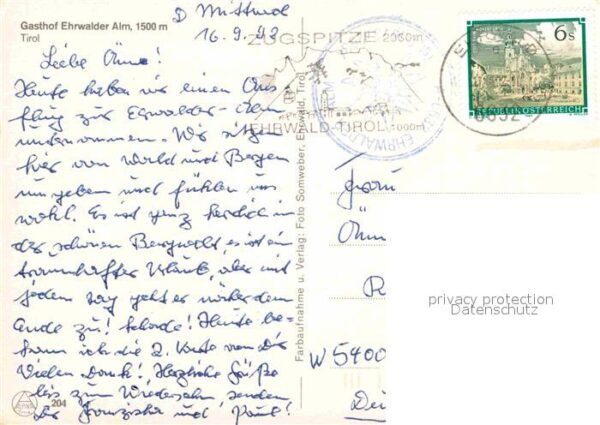 Gasthof Ehrwalder Alm, 1500 m
Tirol
D Mittwoch
16.9.92
Liebe Omi!
Heute haben wir einen Aus
flug zur Ehrwalder-Alm
unternommen. Wir sind
hier von Wald und Bergen
umgeben und fühlen uns
wohl. Es ist ganz herrlich in
der schönen Bergwelt, es ist ein
traumhafter Urlaub, aber mit
jedem Tag geht er wieder dem
Ende zu! Schade! Heute be-
kam ich die 2. Karte von Dir
Vielen Dank! Herzliche Grüße
bis zum Wiedersehn senden
Dir Franziska und Paul!
204
Farbaufnahme u. Verlag: Foto Somweber, Ehrwald, Tirol
ZUGSPITZE 2950m
EHRWALD-TIROL 1000m
EHRWALD
6632
6s
REPUBLIK ÖSTERREICH
Frau
W 5400
privacy protection
Datenschutz